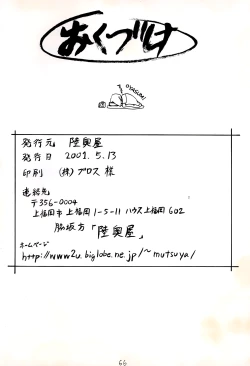 おくづけ
OYASUMI
発行元 陸奥屋
発行日 2001.5.13
印刷 (株)プロス 様
連絡先
〒356-0004
上福岡市上福岡1-5-11 ハウス上福岡602
脇坂方「陸奥屋」
ホームページ
http://www2u.biglobe.ne.jp/~mutsuya/
66